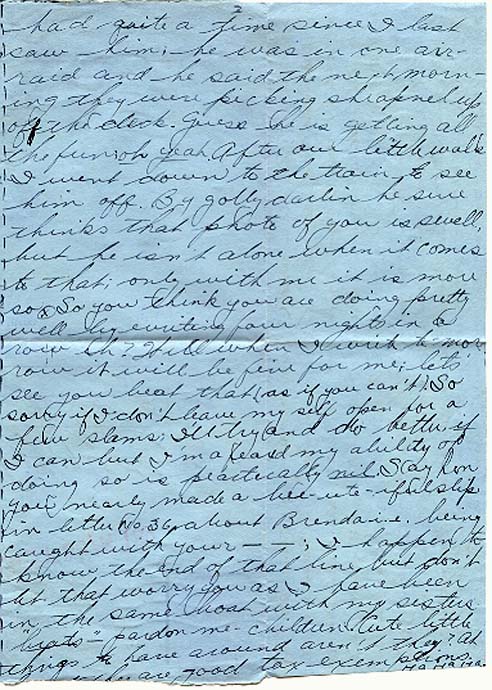 2
had quite a time since I last
saw him; he was in one air-
raid and he said the next morn-
ing they were picking shrapnel up
off the deck. Guess he is getting all
the fun, oh yeah. After our little walk
I went down to the train to see
him off. By golly darlin he sure
thinks that photo of you is swell,
but he isn't alone when it comes
to that; only with me it is more
so. So you think you are doing pretty
well by writing four nights in a
row Eh? Well when I write tomor-
row it will be five for me; let's
see you beat that (as if you can't). So
sorry if I don't leave my self open for a
few slams; I'll try and do better if
I can but I'm afeard my ability of
doing so is practically nil. Say hon
you nearly made a bee-ute-iful slip
in letter No. 36 about Brenda i.e. being
caught with your — —; I happen to
know the end of that line but don't
let that worry you as I have been
in the same boat with my sisters
"brats" - pardon me - children. Cute little
things to have around aren't they? At
they are good tax exemptions.
Ha Ha Ha.